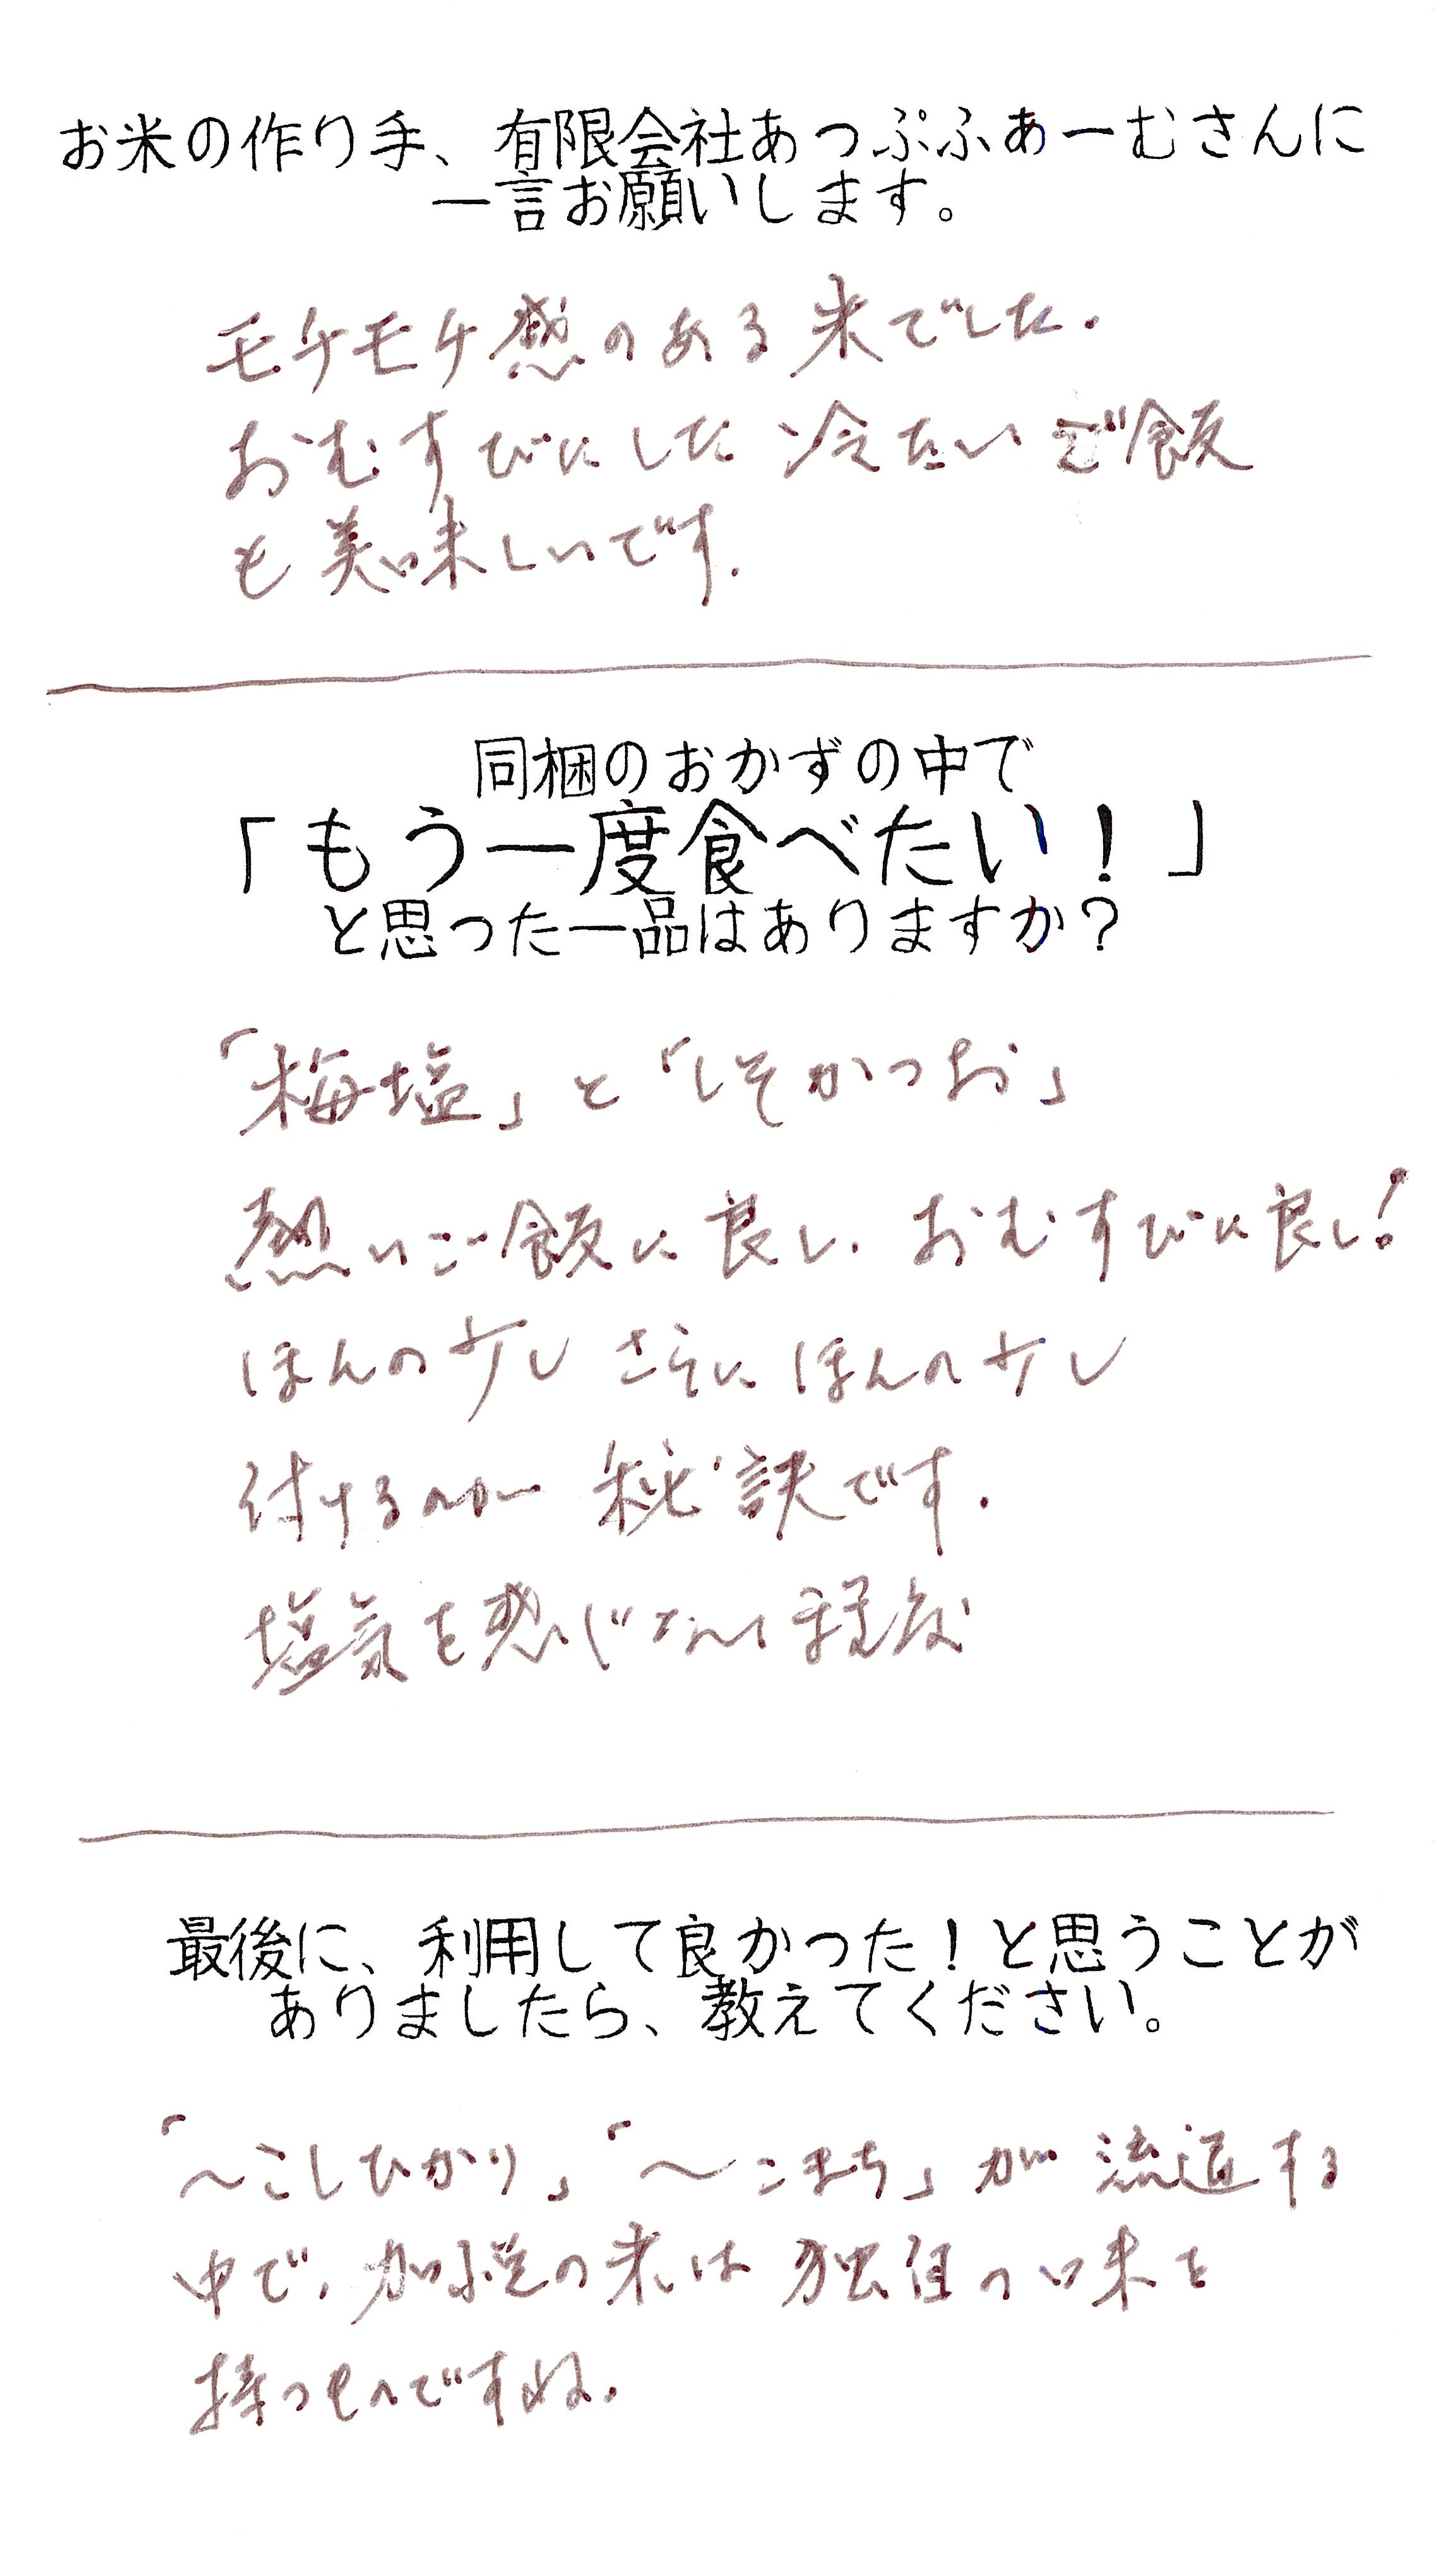 お米の作り手、有限会社あっぷふぁーむさんに
一言お願いします。
モチモチ感のある米でした.
おむすびにした冷たいご飯
も美味しいです.
同梱のおかずの中で
「もう一度食べたい！」
と思った一品はありますか？
「梅塩」と「しそかつお」
熱いご飯に良し.おむすびに良し!
ほんの少しさらにほんの少し
付けるのが秘訣です.
塩気を感じない程度
最後に、利用して良かった！と思うことが
ありましたら、教えてください。
「～こしひかり」「～こまち」が流通する
中で,の米は独自の味を
持つものですね.